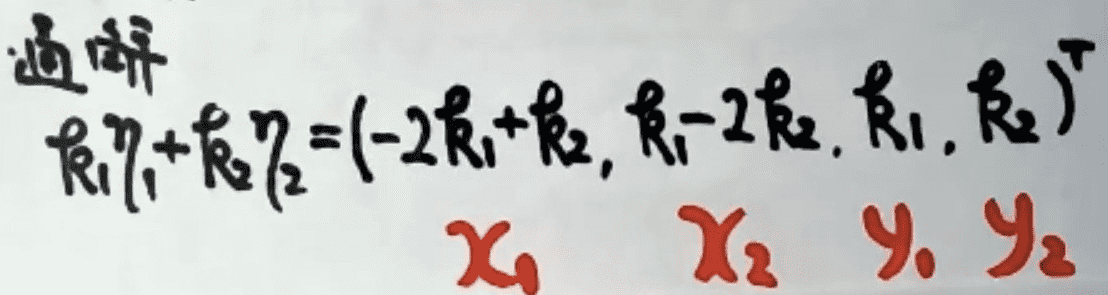 通解
k₁η₁+k₂η₂=(-2k₁+k₂, k₁-2k₂, k₁, k₂)ᵀ
x₁ x₂ y₁ y₂